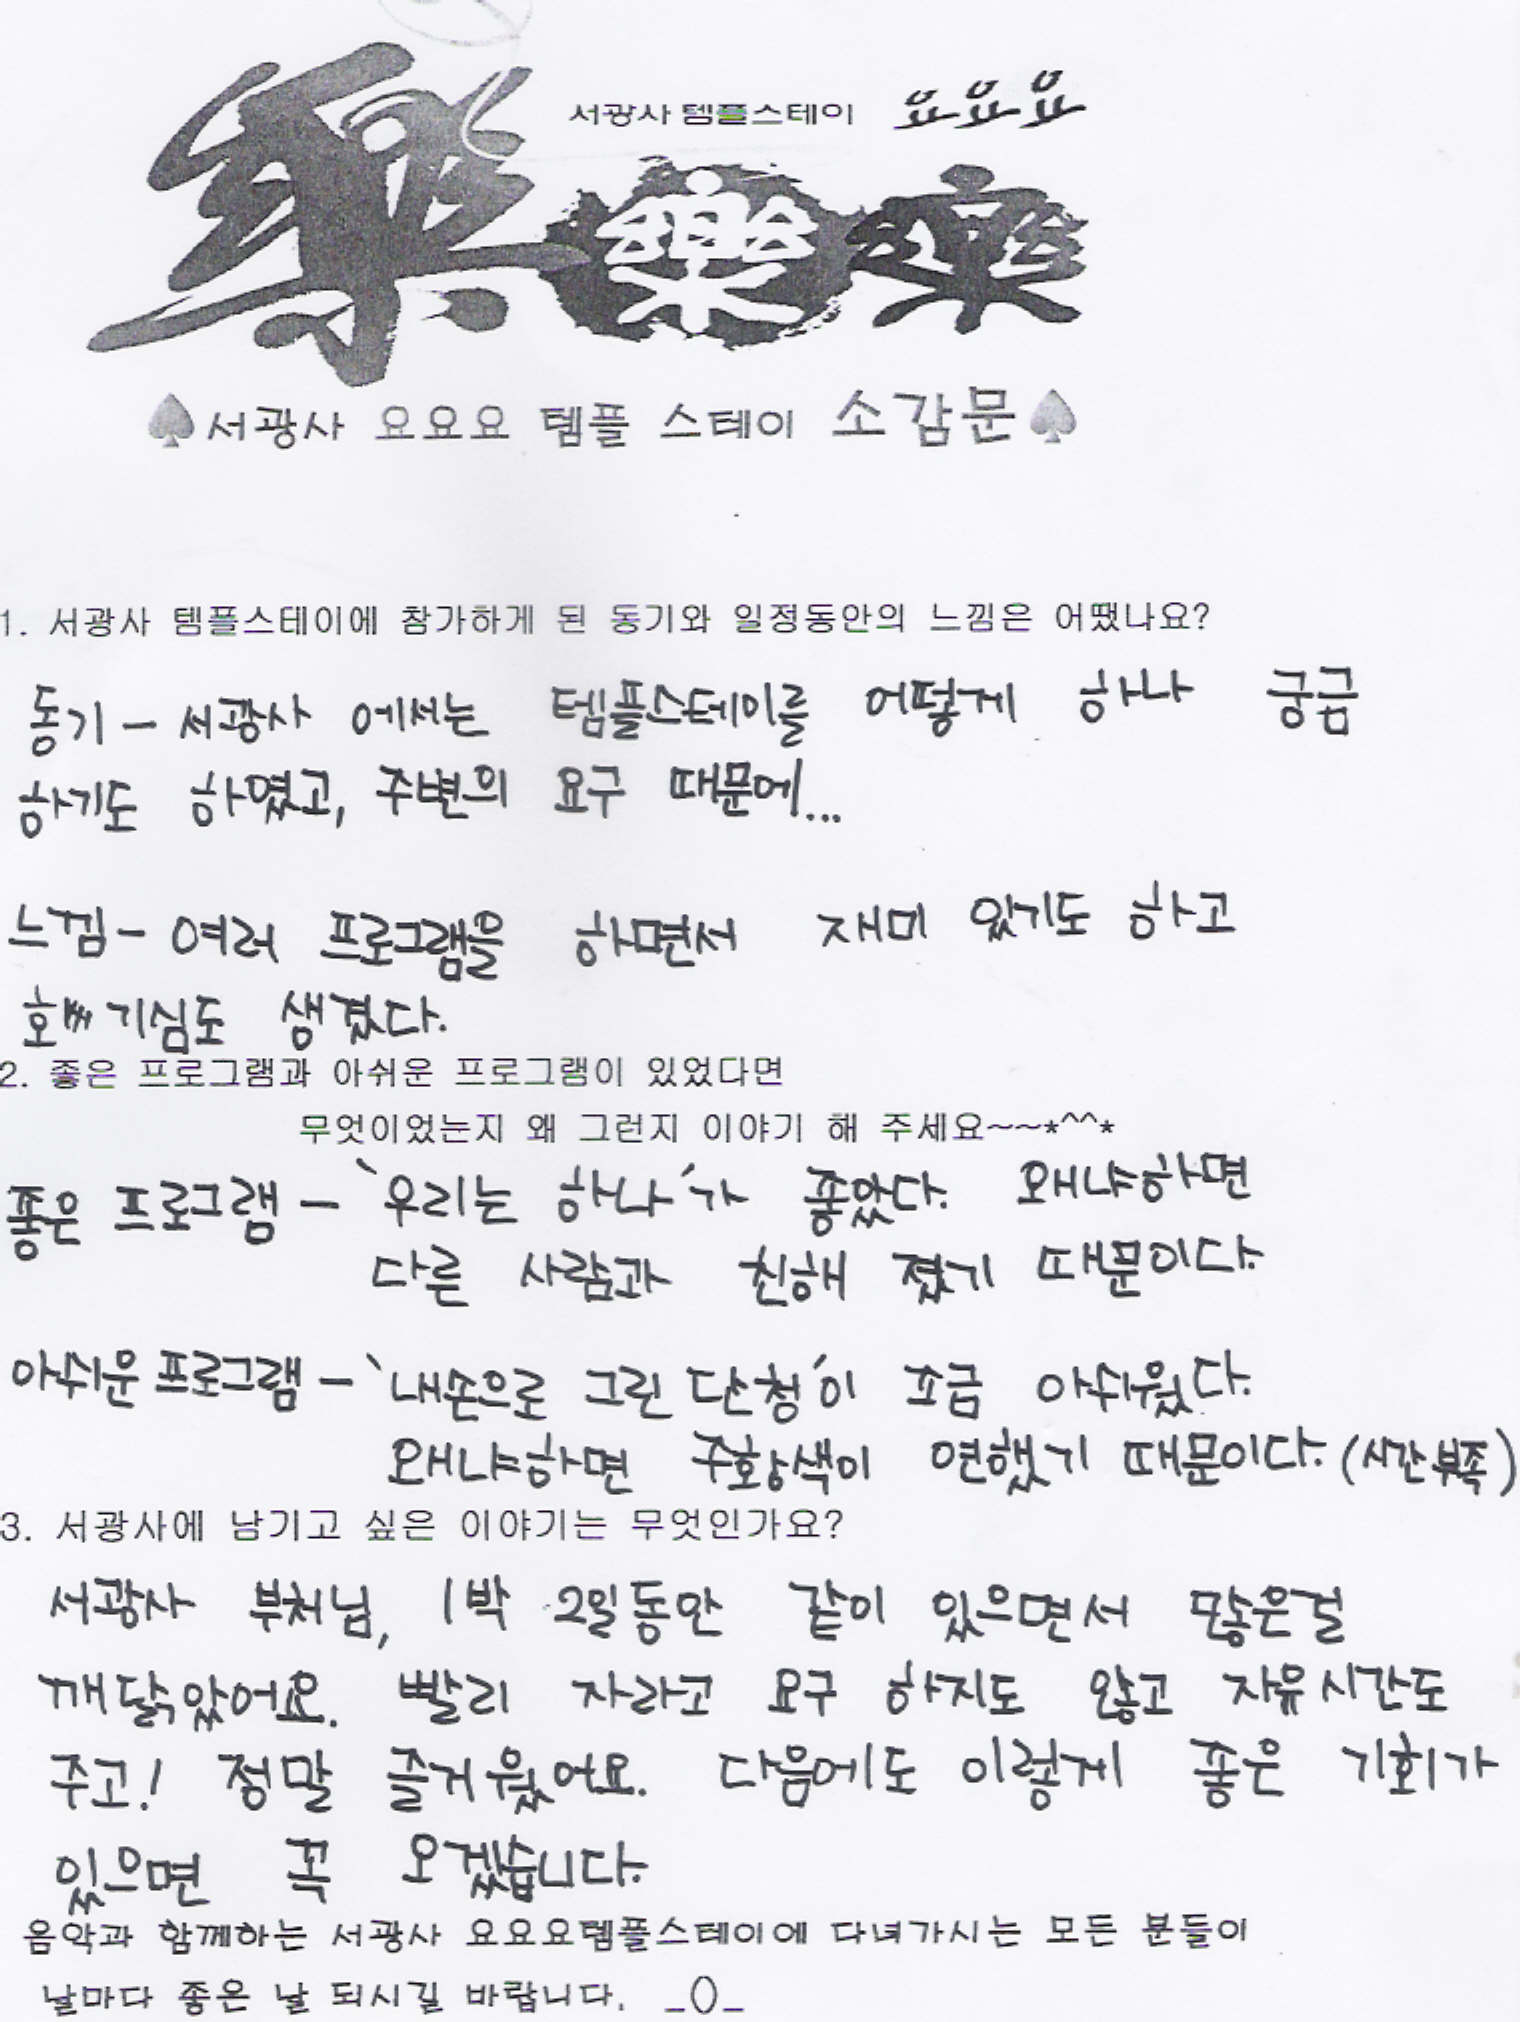 서광사 템플스테이 요요요
樂 樂 樂
♠서광사 요요요 템플 스테이 소감문♠
1. 서광사 템플스테이에 참가하게 된 동기와 일정동안의 느낌은 어땠나요?
동기 - 서광사 에서는 템플스테이를 어떻게 하나 궁금
하기도 하였고, 주변의 요구 때문에...
느낌 - 여러 프로그램을 하면서 재미 있기도 하고
호기심도 생겼다.
2. 좋은 프로그램과 아쉬운 프로그램이 있었다면
무엇이었는지 왜 그런지 이야기 해 주세요~~*^^*
좋은 프로그램 - '우리는 하나'가 좋았다. 왜냐하면
다른 사람과 친해 졌기 때문이다.
아쉬운 프로그램 - '내손으로 그린 단청'이 조금 아쉬웠다.
왜냐하면 주황색이 연했기 때문이다. (시간 부족)
3. 서광사에 남기고 싶은 이야기는 무엇인가요?
서광사 부처님, 1박 2일동안 같이 있으면서 많은걸
깨닭았어요. 빨리 자라고 요구 하지도 않고 자유시간도
주고! 정말 즐거웠어요. 다음에도 이렇게 좋은 기회가
있으면 꼭 오겠습니다.
음악과 함께하는 서광사 요요요템플스테이에 다녀가시는 모든 분들이
날마다 좋은 날 되시길 바랍니다. _()_